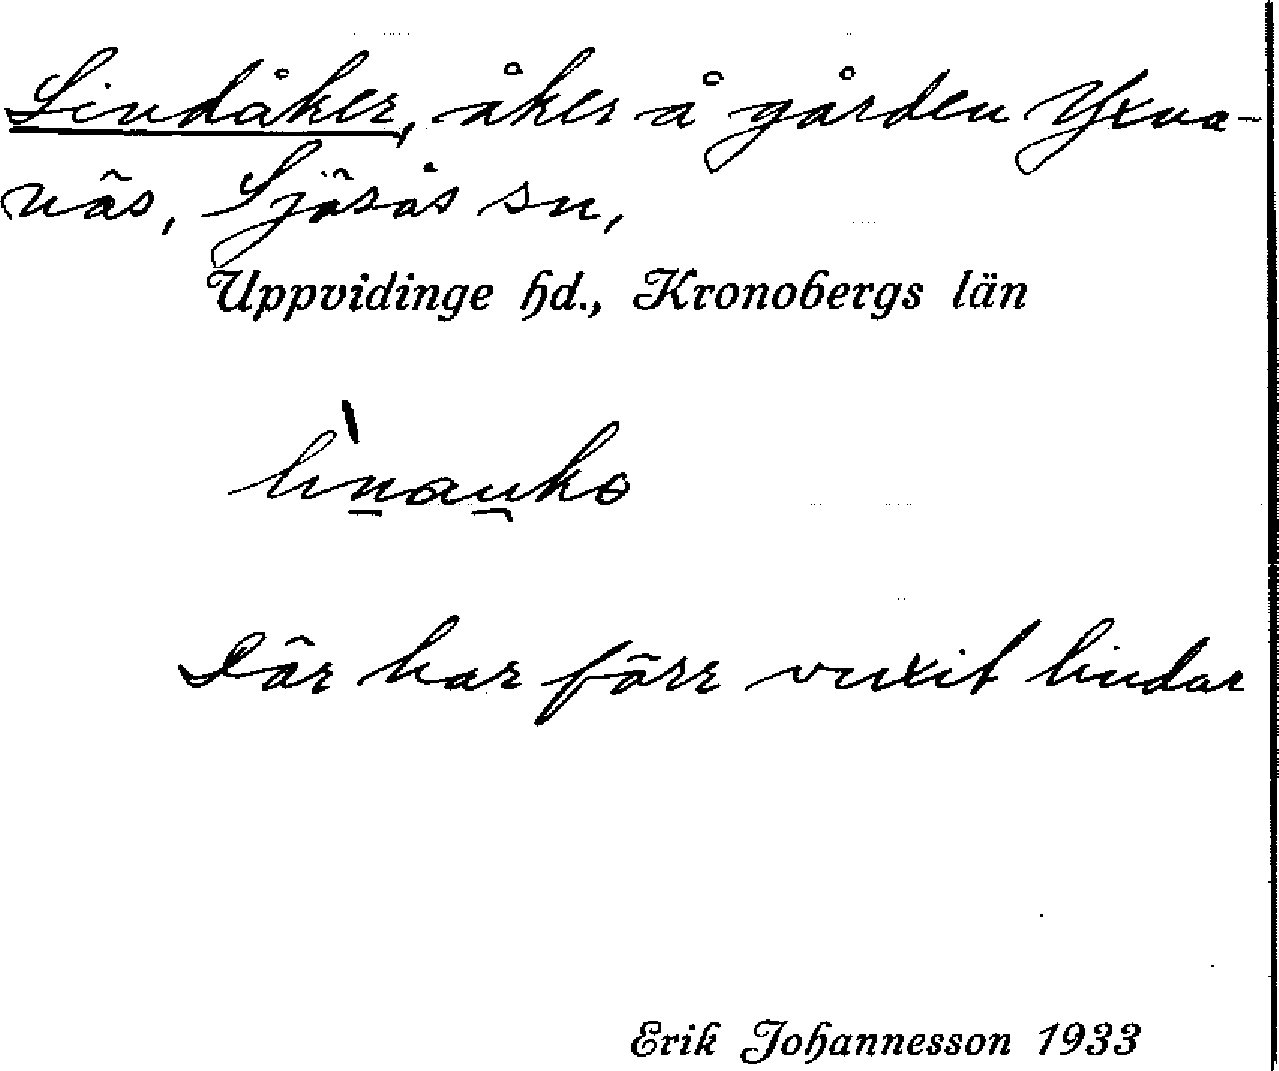 Lindåker, åker å gården Yxna-
näs, Sjösås sn,
Uppvidinge hd., Kronobergs län
Där har förr vuxit lindar
Erik Johannesson 1933